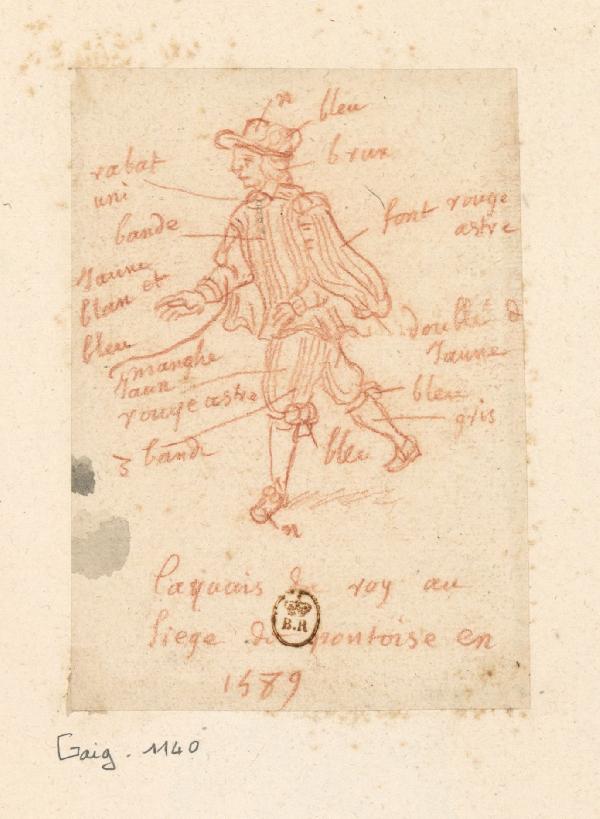 n
bleu
brun
rabat
uni
bande
Jaune
blan et
bleu
font rouge
astre
doublé d
Jaune
manche
Jaun
rouge astre
3 bande
bleu
gris
bleu
n
laquais du roy au
siege de pontoise en
1589
B.R
Gaig. 1140